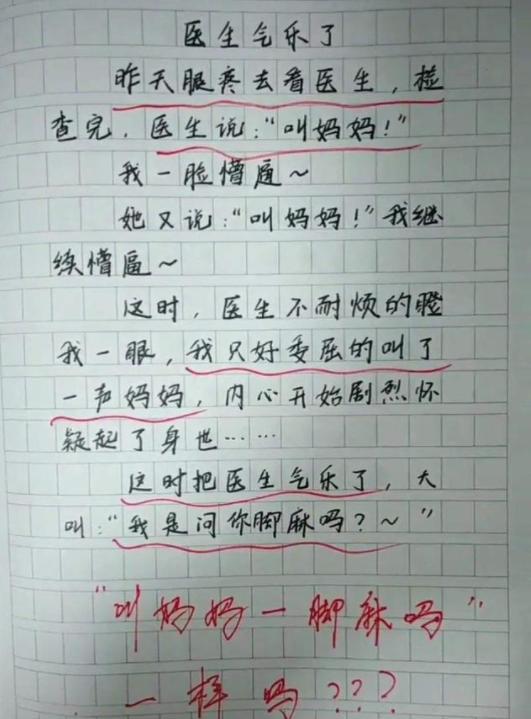 医生气乐了
昨天腿疼去看医生，检
查完，医生说：“叫妈妈！”
我一脸懵逼～
她又说：“叫妈妈！”我继
续懵逼～
这时，医生不耐烦的瞪
我一眼，我只好委屈的叫了
一声妈妈，内心开始剧烈怀
疑起了身世……
这时把医生气乐了，大
叫：“我是问你脚麻吗？～”
“叫妈妈一脚麻吗”
一样吗???